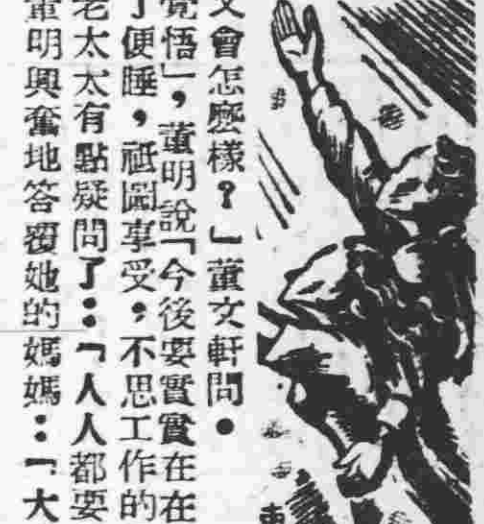 會怎麼樣？」董文軒問。
覺悟」，董明說「今後要實實在在
了便睡，祇圖享受，不思工作的
老太太有點疑問了：「人人都要
董明興奮地答覆她的媽媽：「大